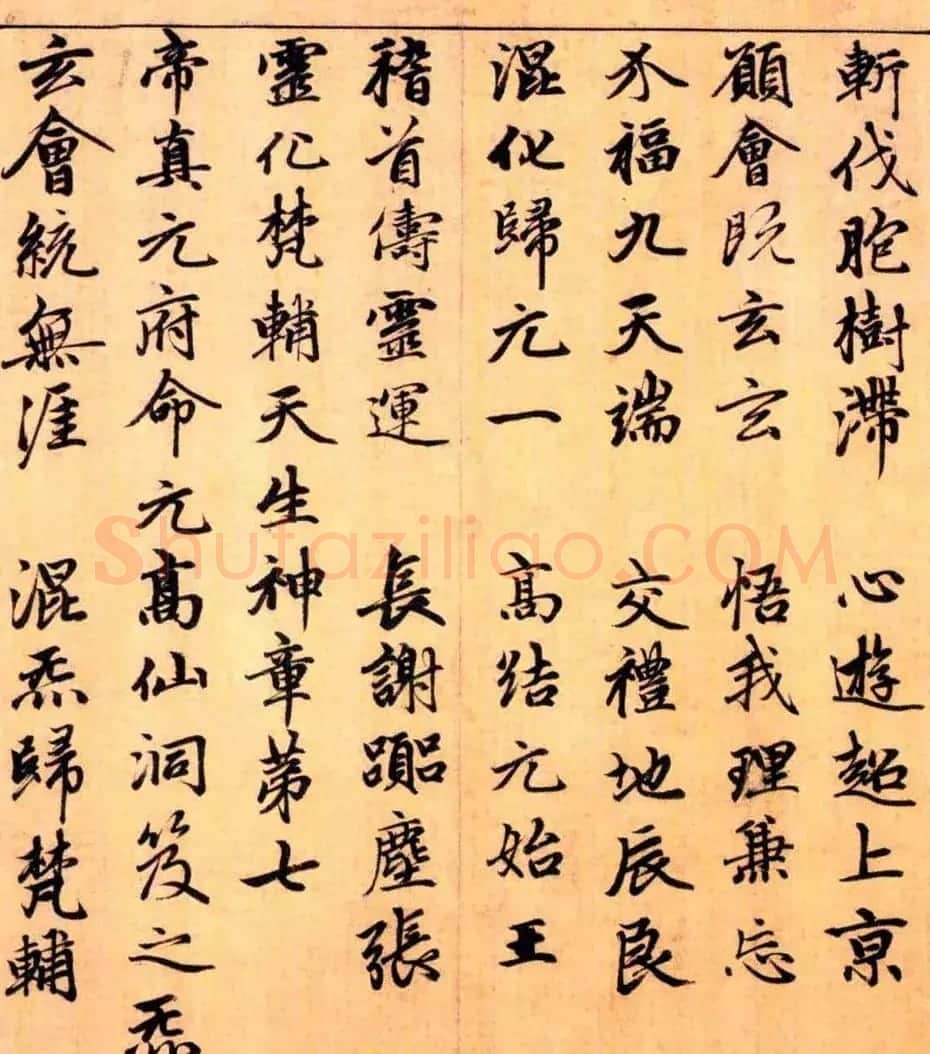 斬伐胞樹滯　心遊超上京
願會既玄玄　悟我理兼忘
介福九天端　交禮地辰良
混化歸元一　高結元始王
稽首儔靈運　長謝囂塵張
靈化梵輔天生神章第七
帝真元府命元高仙洞笈之炁
玄會統無涯　混炁歸梵輔
Shufaziliao.COM